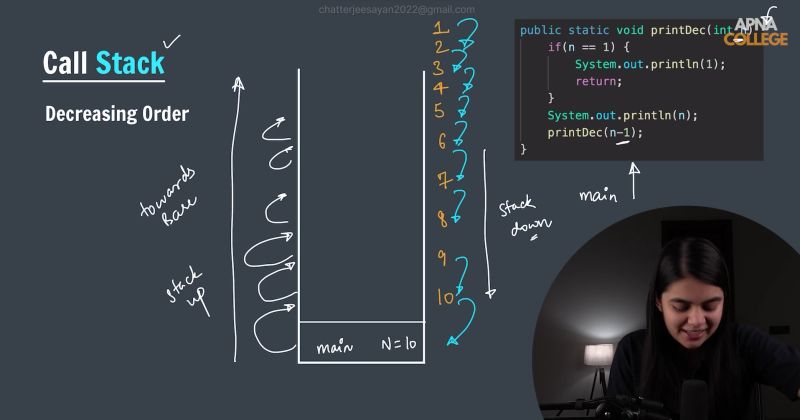 chatterjeesayan2022@gmail.com
Call Stack
Decreasing Order
towards
Base
stack
up
1
2
3
4
5
6
7
8
9
10
main N=10
stack
down
public static void printDec(int n)
if(n == 1) {
System.out.println(1);
return;
}
System.out.println(n);
printDec(n-1);
}
APNA
COLLEGE
main